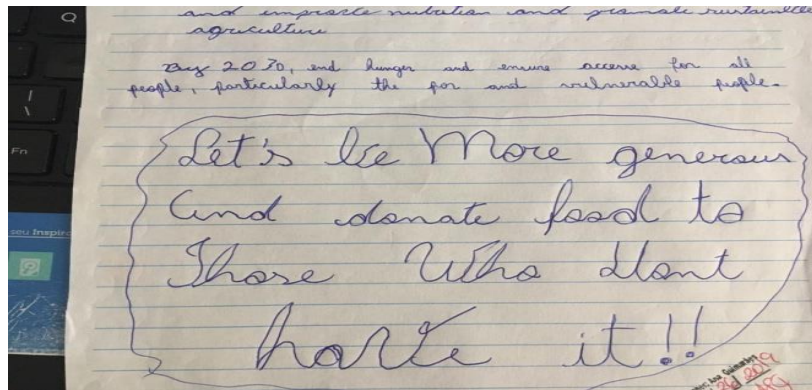 and improste nutrition and promote sustainable
agriculture
By 2030, end hunger and ensure access for all
people, particularly the por and vulnerable people.
Let's be More generous
and donate food to
Those Who Dont
have it!!
Q
Fn
seu Inspiro
2019